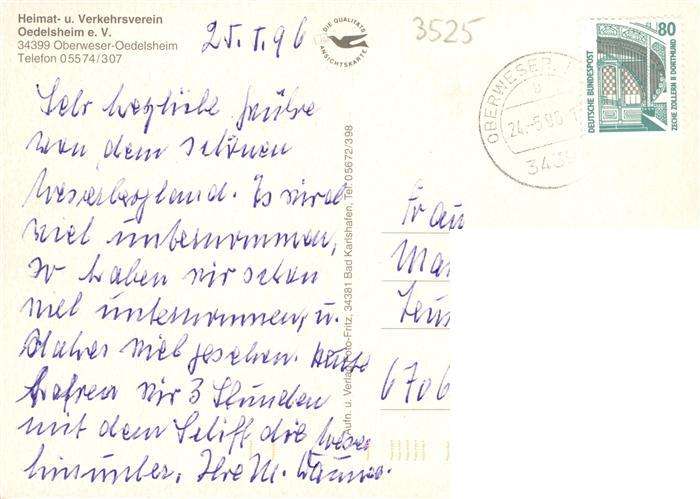 Heimat- u. Verkehrsverein
Oedelsheim e. V.
34399 Oberweser-Oedelsheim
Telefon 05574/307
25.5.96
DIE QUALITÄTS
ANSICHTSKARTE
3525
80
DEUTSCHE BUNDESPOST
ZECHE ZOLLERN II DORTMUND
OBERWESER
24.-5.96
3439
Sehr herzliche Grüße
von dem schönen
Weserbergland. Es wird
viel unternommen,
so haben wir schon
viel unternommen, u.
daher viel gesehen. Heute
trafren wir 3 Stunden
mit dem Schiff die Weser
hinunter. Ihre M.
Aufn. u. Verlag Foto-Fritz, 34381 Bad Karlshafen, Tel. 05672/398
Frau
Mar
6706